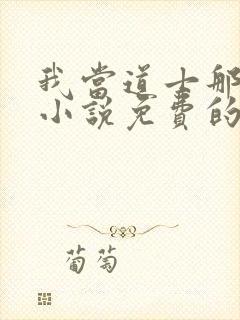 我當道士那
小說免費的
葡萄